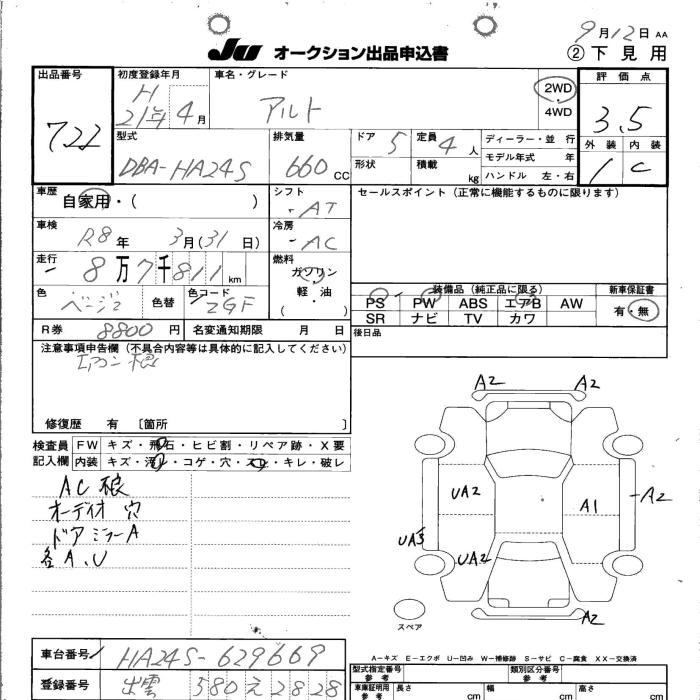 9月12日 AA
JU オークション出品申込書 ② 下見用
出品番号 722
初度登録年月 H 21年 4月
車名・グレード アルト
2WD・4WD
評価点 3.5
外装 1 内装 C
型式 DBA-HA24S
排気量 660 CC
ドア 5
定員 4人
形状
積載 kg
ディーラー・並行
モデル年式 年
ハンドル 左・右
車歴 自家用・( )
シフト AT
セールスポイント (正常に機能するものに限ります)
車検 R8年 3月(31日)
冷房 AC
走行 8万7千811 km
燃料 ガソリン・軽・油・( )
色 ベージュ 色替
色コード ZGF
装備品 (純正品に限る)
PS PW ABS エアB AW
SR ナビ TV カワ
新車保証書 有・無
R券 8800円 名変通知期限 月 日
後日品
注意事項申告欄 (不具合内容等は具体的に記入してください)
エアコン
修復歴 有 〔箇所 〕
検査員記入欄
FW キズ・飛石・ヒビ割・リペア跡・X要
内装 キズ・汚レ・コゲ・穴・スレ・キレ・破レ
オーディオ 穴
ドアミラーA
各A、U
A2 A2
UA2 A1 A2
UA3 UA2
A2
スペア
A-キズ E-エクボ U-凹み W-補修跡 S-サビ C-腐食 XX-交換済
車台番号 HA24S-629669
登録番号 出雲 580 え 2828
型式指定番号 参考
類別区分番号 参考
車庫証明用 参考 長さ cm 幅 cm 高さ cm